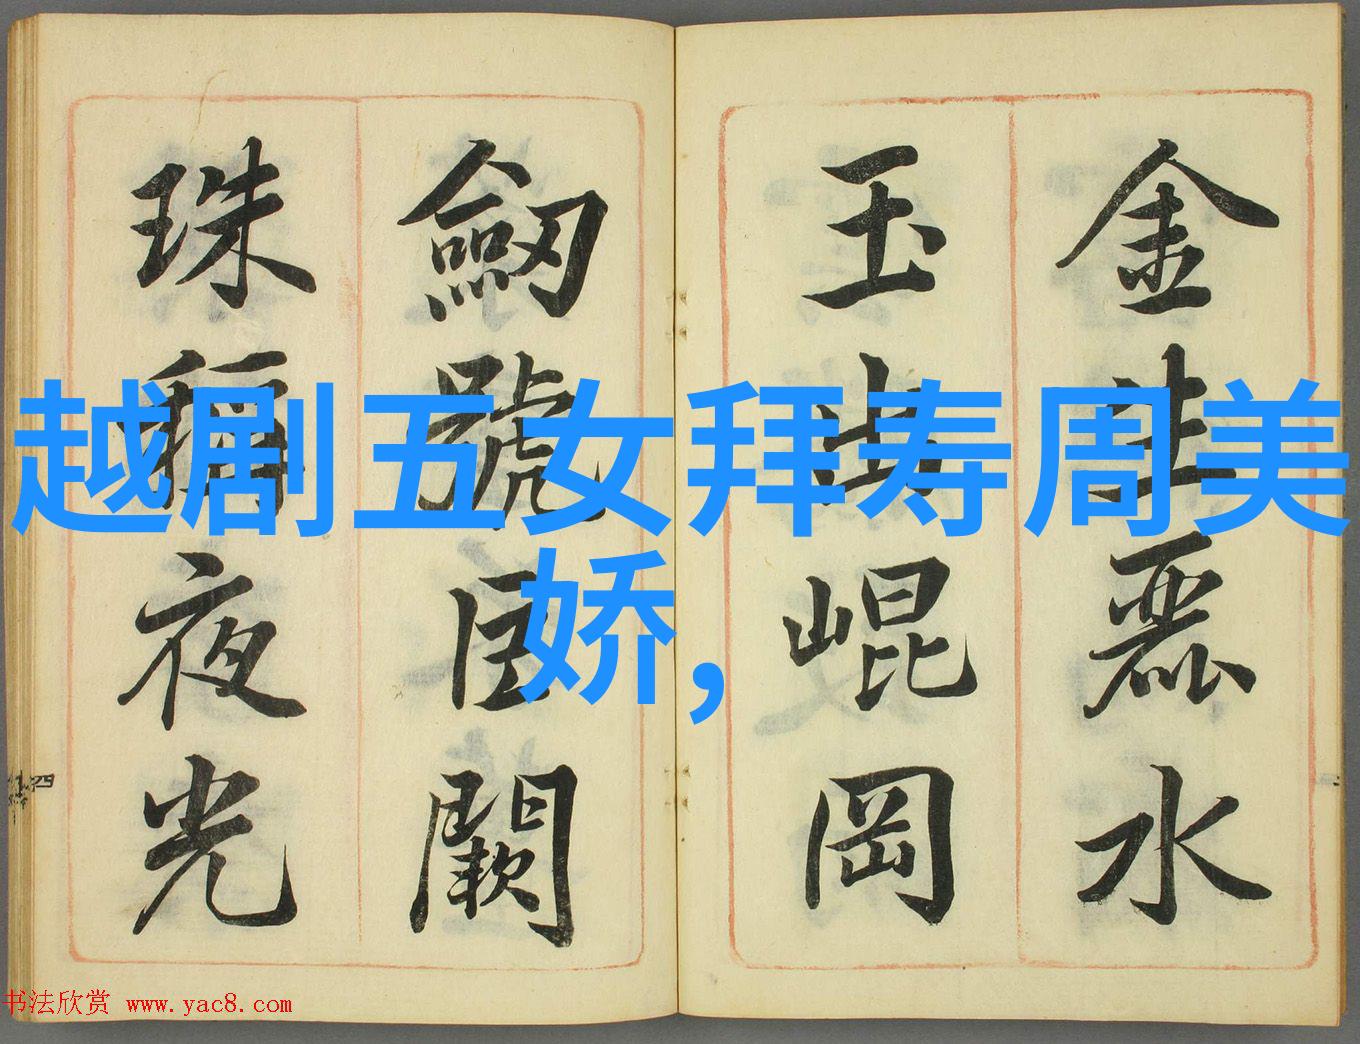 金生麗水
玉出崐岡
劒號巨闕
珠稱夜光
越剧五女拜寿周美
娇,
四
书法欣赏 www.yac8.com